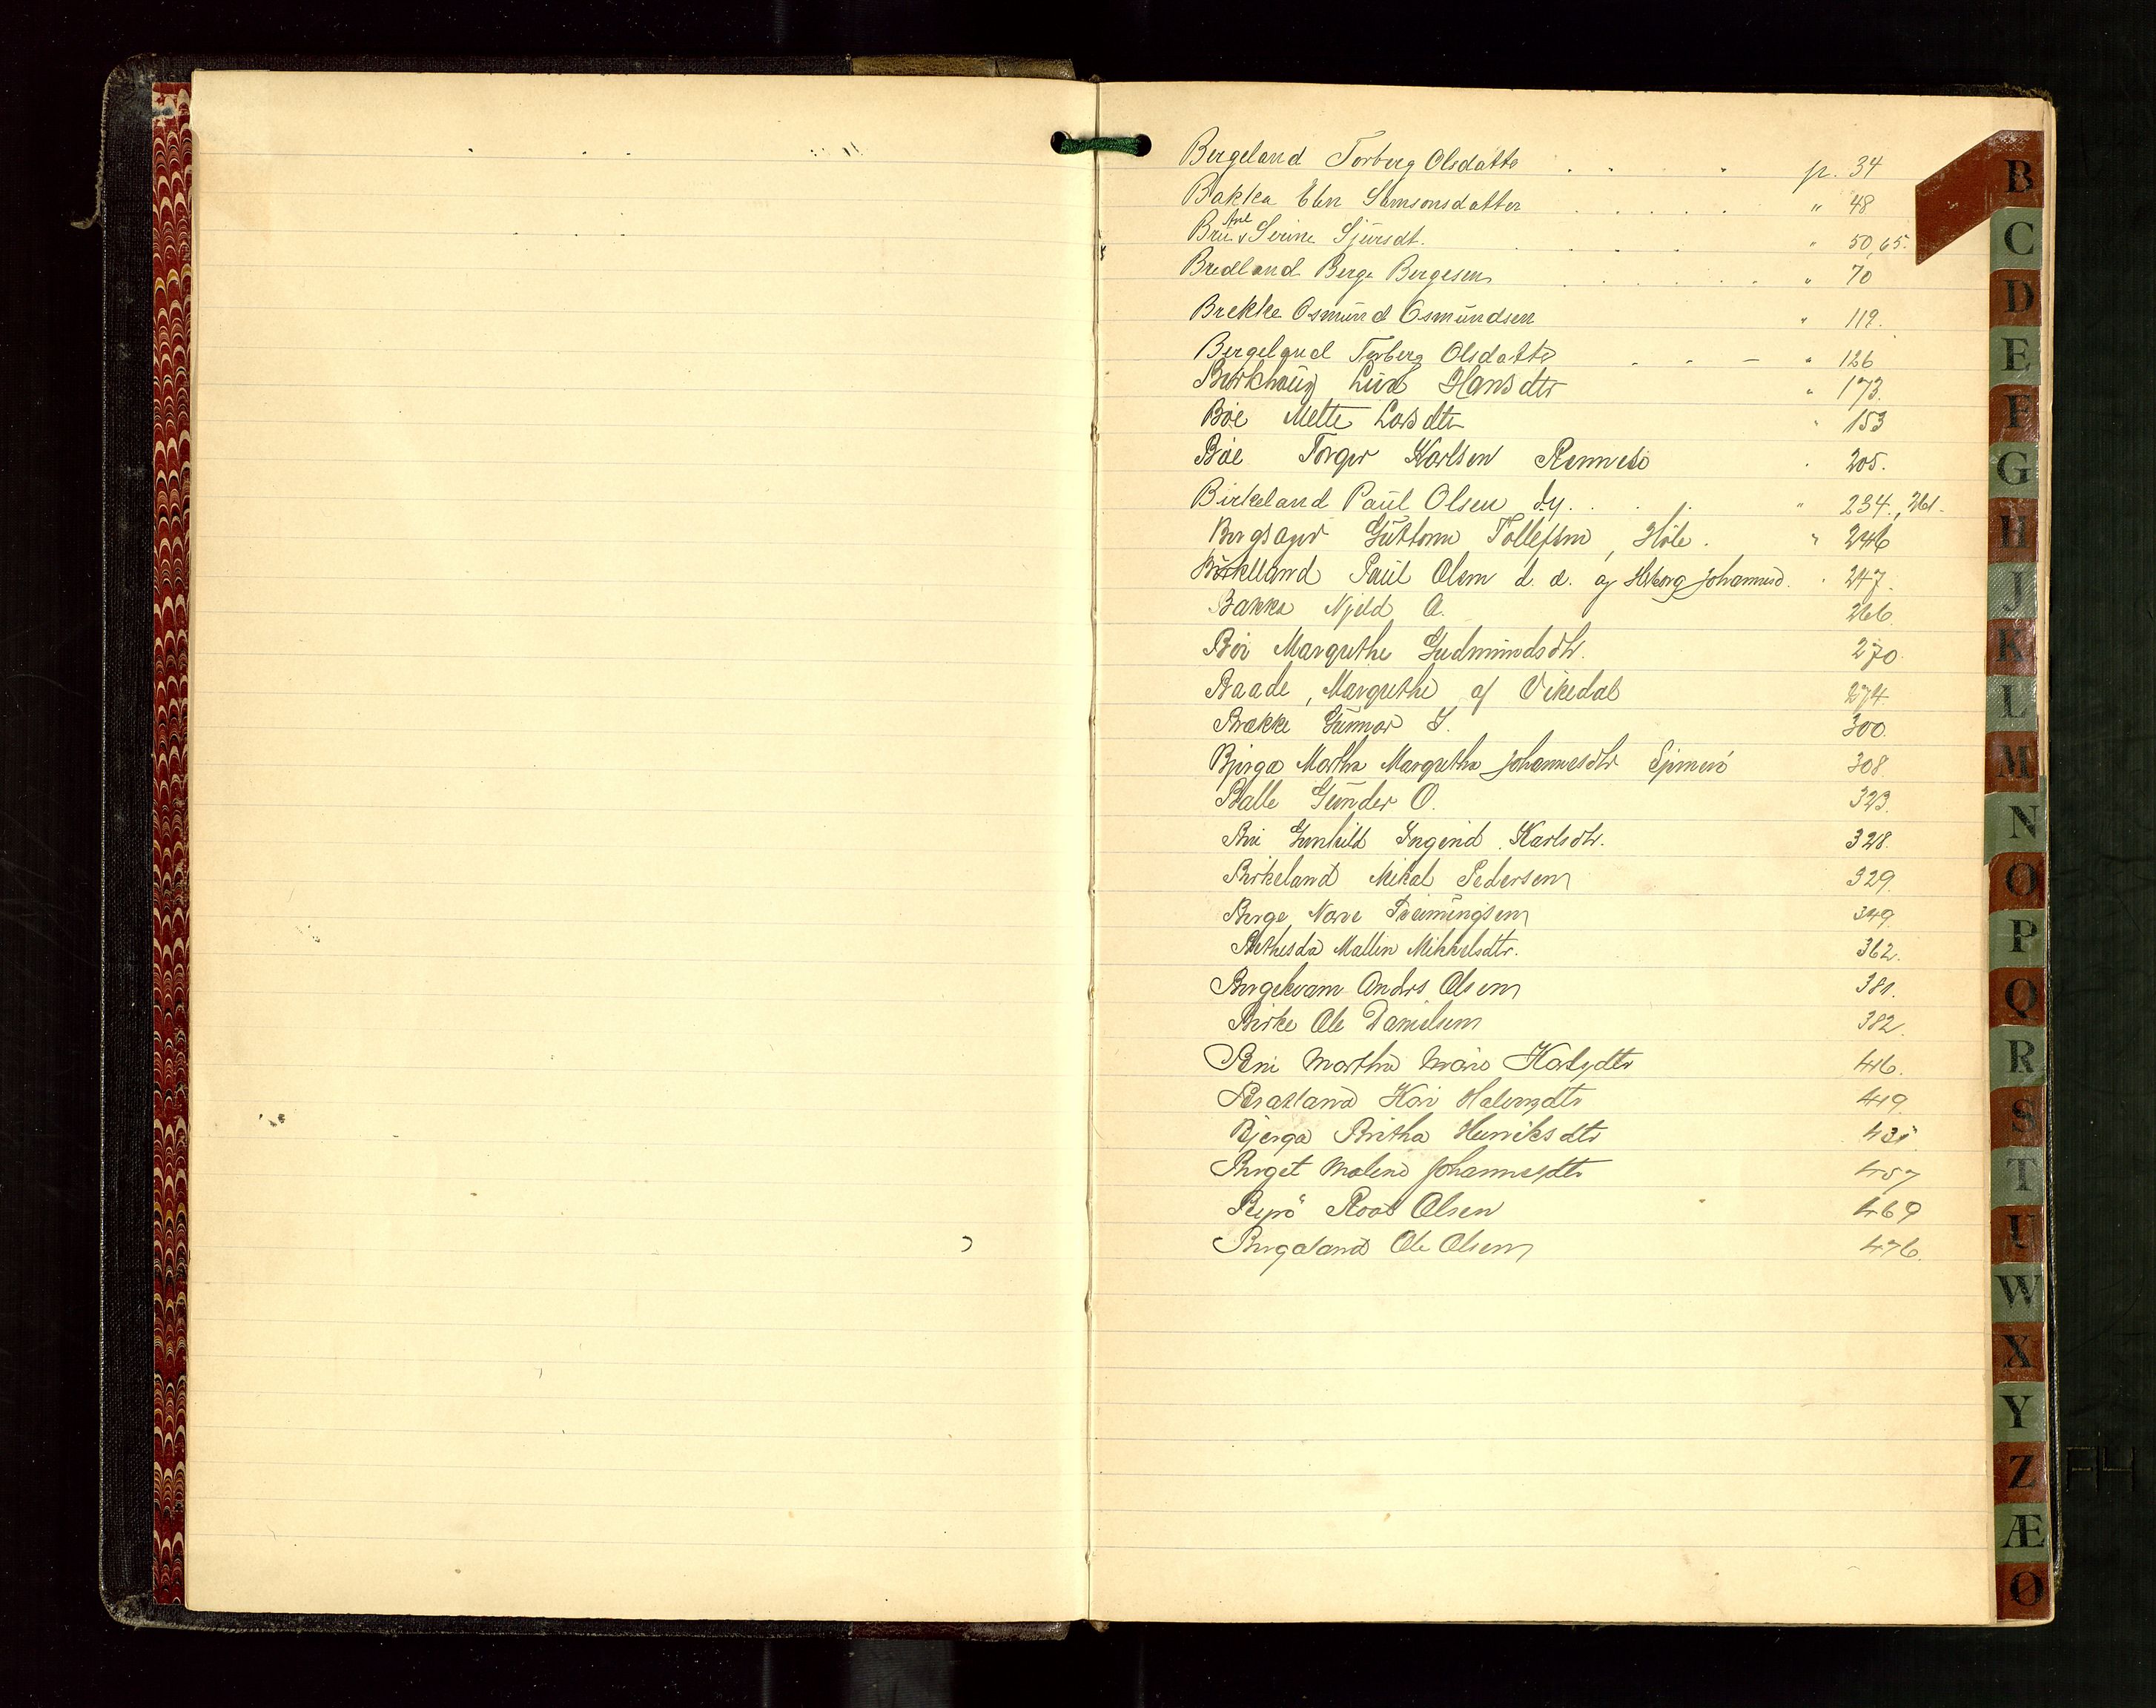 Bergeland Torberg Olsdatter . . . p. 34
Bakka Elen Samsonsdatter . . . . . " 48
Brui Ane & Serine Sjursdt. . . . . " 50, 65.
Bredland Berge Bergesen . . . . . . " 70
Brekke Osmund Osmundsen " 119.
Bergeland Torberg Olsdatter . - - " 126
Birkhaug Liva Hansdtr " 173.
Bøe Mette Larsdtr " 153
Bøe Torger Karlsen Rennesø . 205.
Birkeland Paul Olsen dy. . . . " 234., 261.
Bergsager Guttorm Tollefsen, Høle. " 246
Birkelland Paul Olsen d. e. og Johannesd. . 247.
Bakka Njeld A. 266.
Bøe Margrethe Gudmundsdtr. 270.
Baade, Margrethe af Vikedal 274.
Brække Gunnar J. 300.
Bjerga Martha Margretha Johannesdtr Sjernerø 308.
Balle Gunder O. 323.
Bø Gunhild Ingerid Karlsdtr. 328.
Birkeland Mikal Pedersen 329.
Berge, Narve Sveinungsen 349.
Bethesda Mallin Mikkelsdtr. 362.
Bergekvam Anders Olsen 381.
Birke Ole Danielsen 382.
Martha 446.
Bratland Kari 419.
Bjerga Britha Henriksdtr 431
Berget Malene Johannesdtr 457
Byrø Roal Olsen 469
Bergeland Ole Olsen 476.
B
C
D
E
F
G
H
J
K
L
M
N
O
P
Q
R
S
T
U
W
X
Y
Z
Æ
Ø